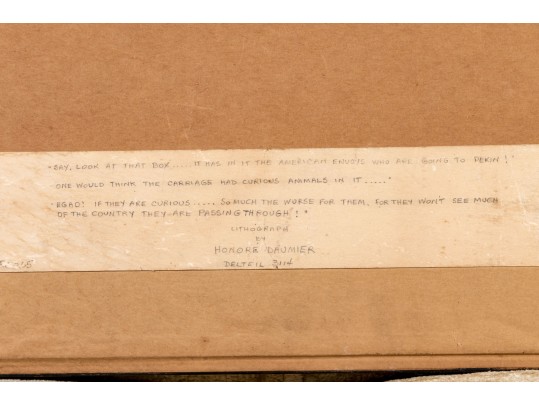 "SAY, LOOK AT THAT BOX.....IT HAS IN IT THE AMERICAN ENVOYS WHO ARE GOING TO PEKIN!"
ONE WOULD THINK THE CARRIAGE HAD CURIOUS ANIMALS IN IT....."
"EGAD! IF THEY ARE CURIOUS ..... SO MUCH THE WORSE FOR THEM, FOR THEY WON'T SEE MUCH
OF THE COUNTRY THEY ARE PASSING THROUGH!"
LITHOGRAPH
BY
HONORE DAUMIER
DELTEIL